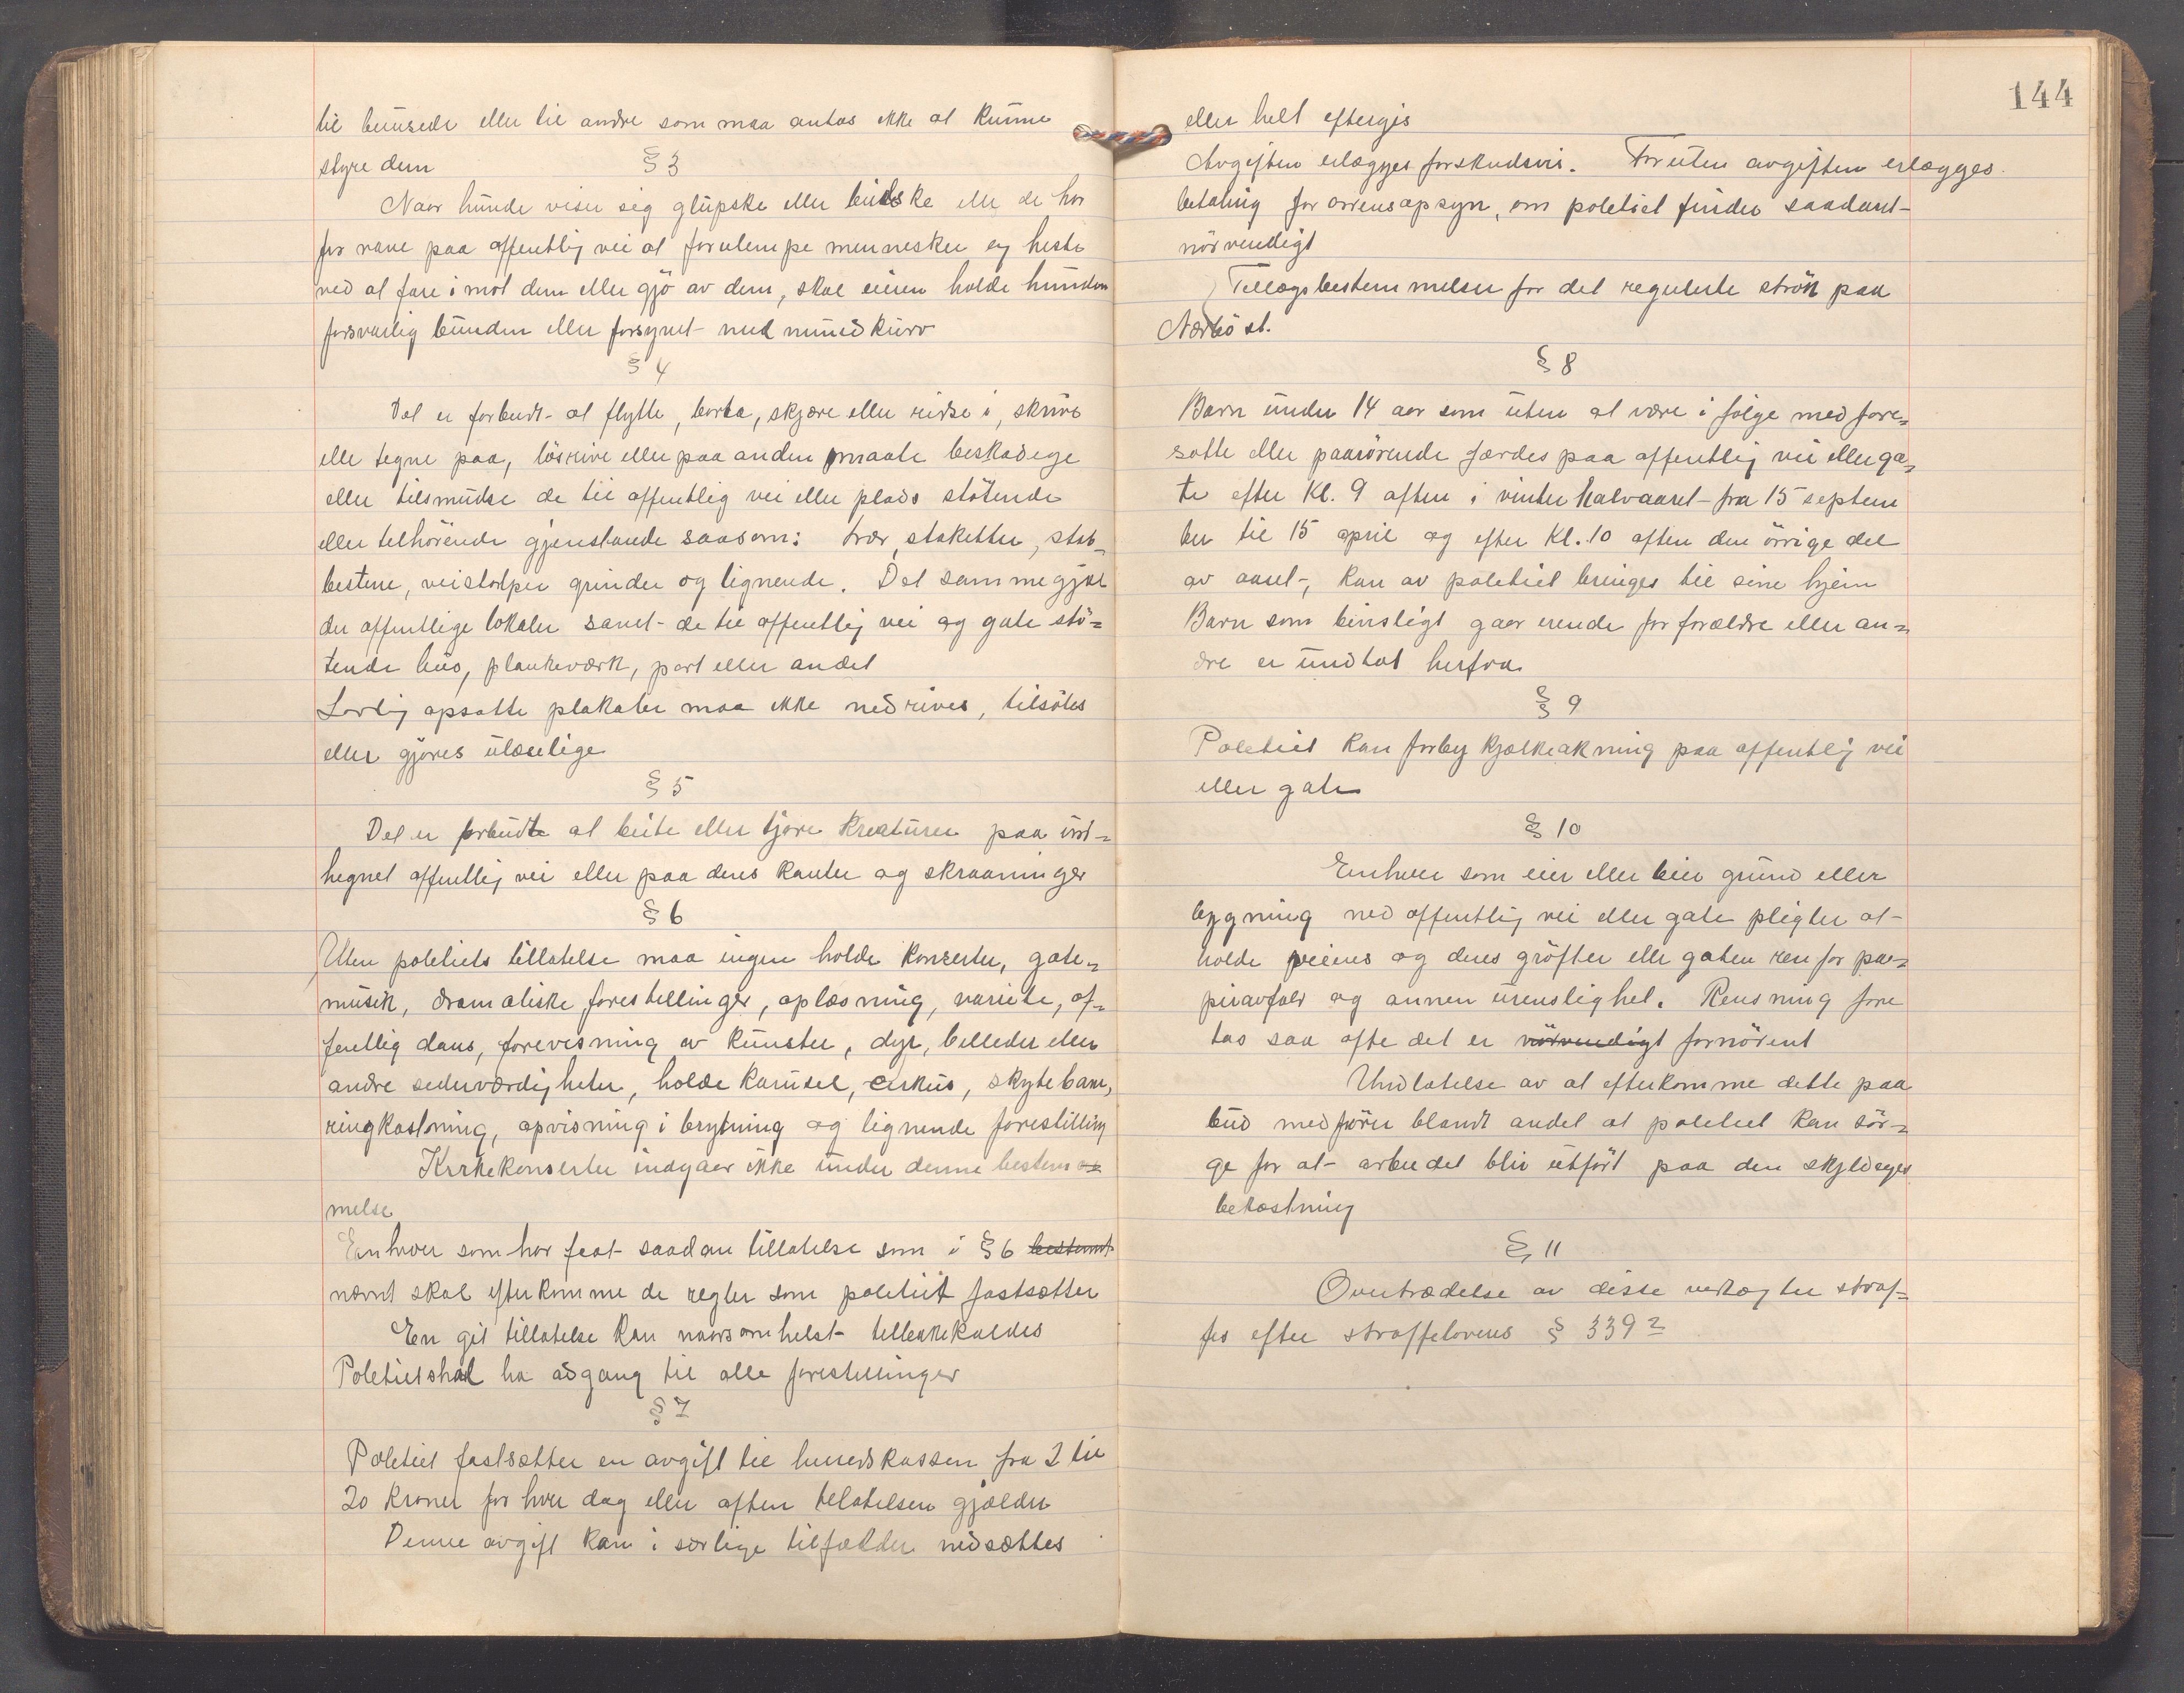 til berusede eller til andre som maa antas ikke at kunne
styre dem
§ 3
Naar hunde viser sig glupske eller bidske eller de har
for vane paa offentlig vei at forulempe mennesker og heste
ved at fare imot dem eller gjö av dem, skal eieren holde hunden
forsvarlig bunden eller forsynet med mundkurv
§ 4
Det er forbudt at flytte, borta, skjære eller ridse i, skrive
elle tegne paa, lösrive eller paa anden maate beskadige
eller tilsmudse de til offentlig vei eller plads stötende
eller tilhörende gjenstande saasom: trær, staketter, stab=
bestene, veistolper grinder og lignende. Det samme gjæl
der offentlige lokaler samt de til offentlig vei og gate stö=
tende hus, plankeværk, port eller andet
Lovlig opsatte plakater maa ikke nedrives, tilsöles
eller gjöres ulæselige
§ 5
Det er forbudt at beite eller tjore kreaturer paa ind=
hegnet offentlig vei eller paa deres kanter og skraaninger
§ 6
Uten politiets tillatelse maa ingen holde konserter, gate=
musik, dramatiske forestillinger, oplæsning, variete, of=
fentlig dans, forevisning av kunster, dyr, billeder eller
andre seeværdigheter, holde karusel, cirkus, skytebane,
ringkastning, opvisning i brytning og lignende forestilling
Kirkekonserter indgaar ikke under denne bestem=
melse
Enhver som har faat saadan tillatelse som i § 6 bestemt
nævnt skal efterkomme de regler som politiet fastsætter
En git tillatelse kan naarsomhelst tilbakekaldes
Politiet skal ha adgang til alle forestillinger
§ 7
Politiet fastsætter en avgift til herredskassen fra 2 til
20 kroner for hver dag eller aften tilatelsen gjælder
Denne avgift kan i særlige tilfælder nedsættes
144
eller helt eftergis
Avgiften erlægges forskudsvis. Foruten avgiften erlægges
betaling for ordensopsyn, om politiet finder saadant
nödvendigt
Tillægsbestemmelser for det regulerte strök paa
Nærbö st.
§ 8
Barn under 14 aar som uten at være i fölge med fore=
satte eller paarörende færdes paa offentlig vei eller ga=
te efter Kl. 9 aften i vinterhalvaaret fra 15 septem
ber til 15 april og efter Kl. 10 aften den övrige del
av aaret, kan av politiet bringes til sine hjem
Barn som bevisligt gaar erende for forældre eller an=
dre er undtat herfra
§ 9
Politiet kan forby kjælkeakning paa offentlig vei
eller gate
§ 10
Enhver som eier eller leier grund eller
bygning ved offentlig vei eller gate pligter at
holde veiens og deres gröfter eller gaten ren for pa=
piravfald og annen urenslighet. Rensning fore
tas saa ofte det er nödvendigt fornödent
Undlatelse av at efterkomme dette paa
bud medförer blandt andet at politiet kan sör=
ge for at arbeidet blir utfört paa den skyldiges
bekostning
§ 11
Overtrædelse av disse vedtægter straf=
fes efter straffelovens § 339 2